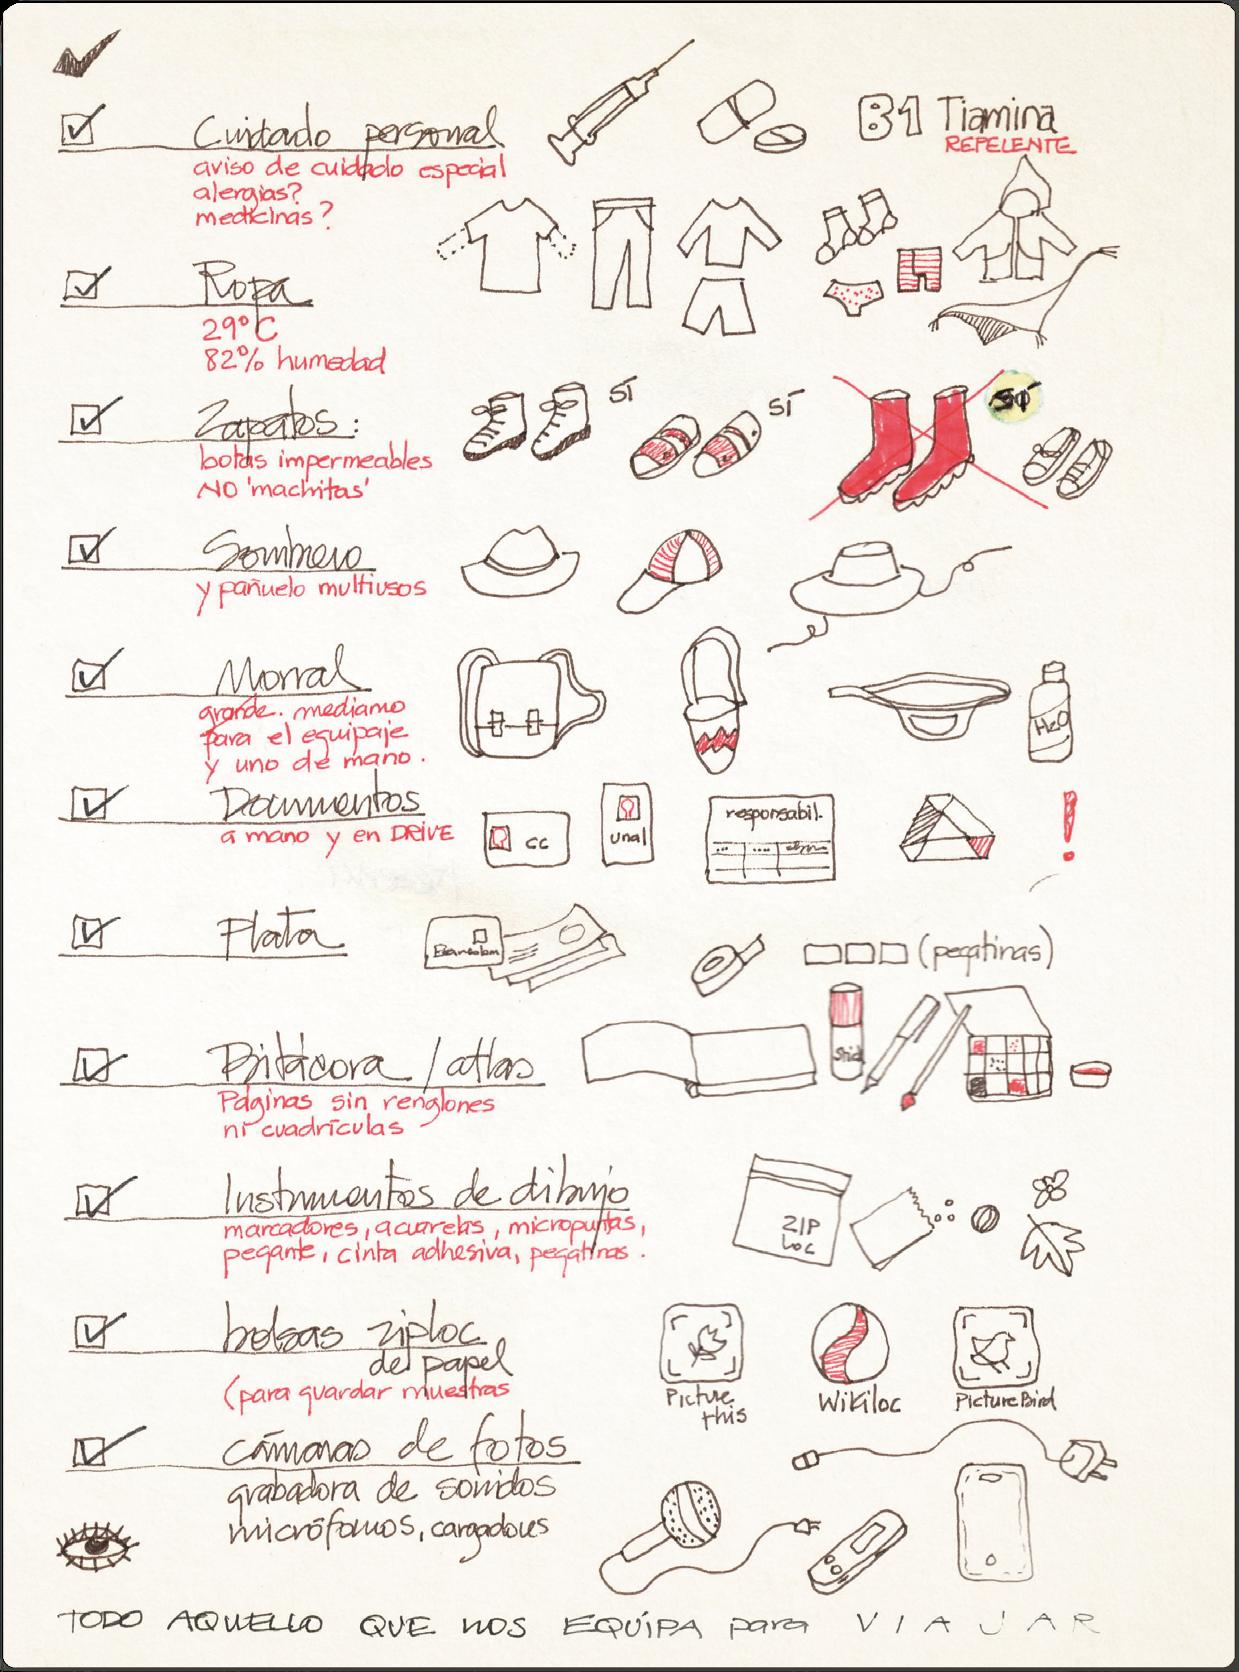 Cuidado personal
aviso de cuidado especial
alergias?
medicinas?
B1 Tiamina
REPELENTE
Ropa
29°C
82% humedad
Zapatos:
botas impermeables
NO 'machitas'
SÍ
SÍ
Sombrero
y pañuelo multiusos
Morral
grande. mediano
para el equipaje
y uno de mano.
H2O
Documentos
a mano y en DRIVE
cc
unal
responsabil.
!
Plata
(pegatinas)
Bitácora / atlas
Páginas sin renglones
ni cuadrículas
Instrumentos de dibujo
marcadores, acuarelas, micropuntas,
pegante, cinta adhesiva, pegatinas.
ZIP
Loc
bolsas ziploc
de papel
(para guardar muestras
Picture
this
Wikiloc
PictureBird
cámaras de fotos
grabadora de sonidos
micrófonos, cargadores
TODO AQUELLO QUE NOS EQUIPA para VIAJAR